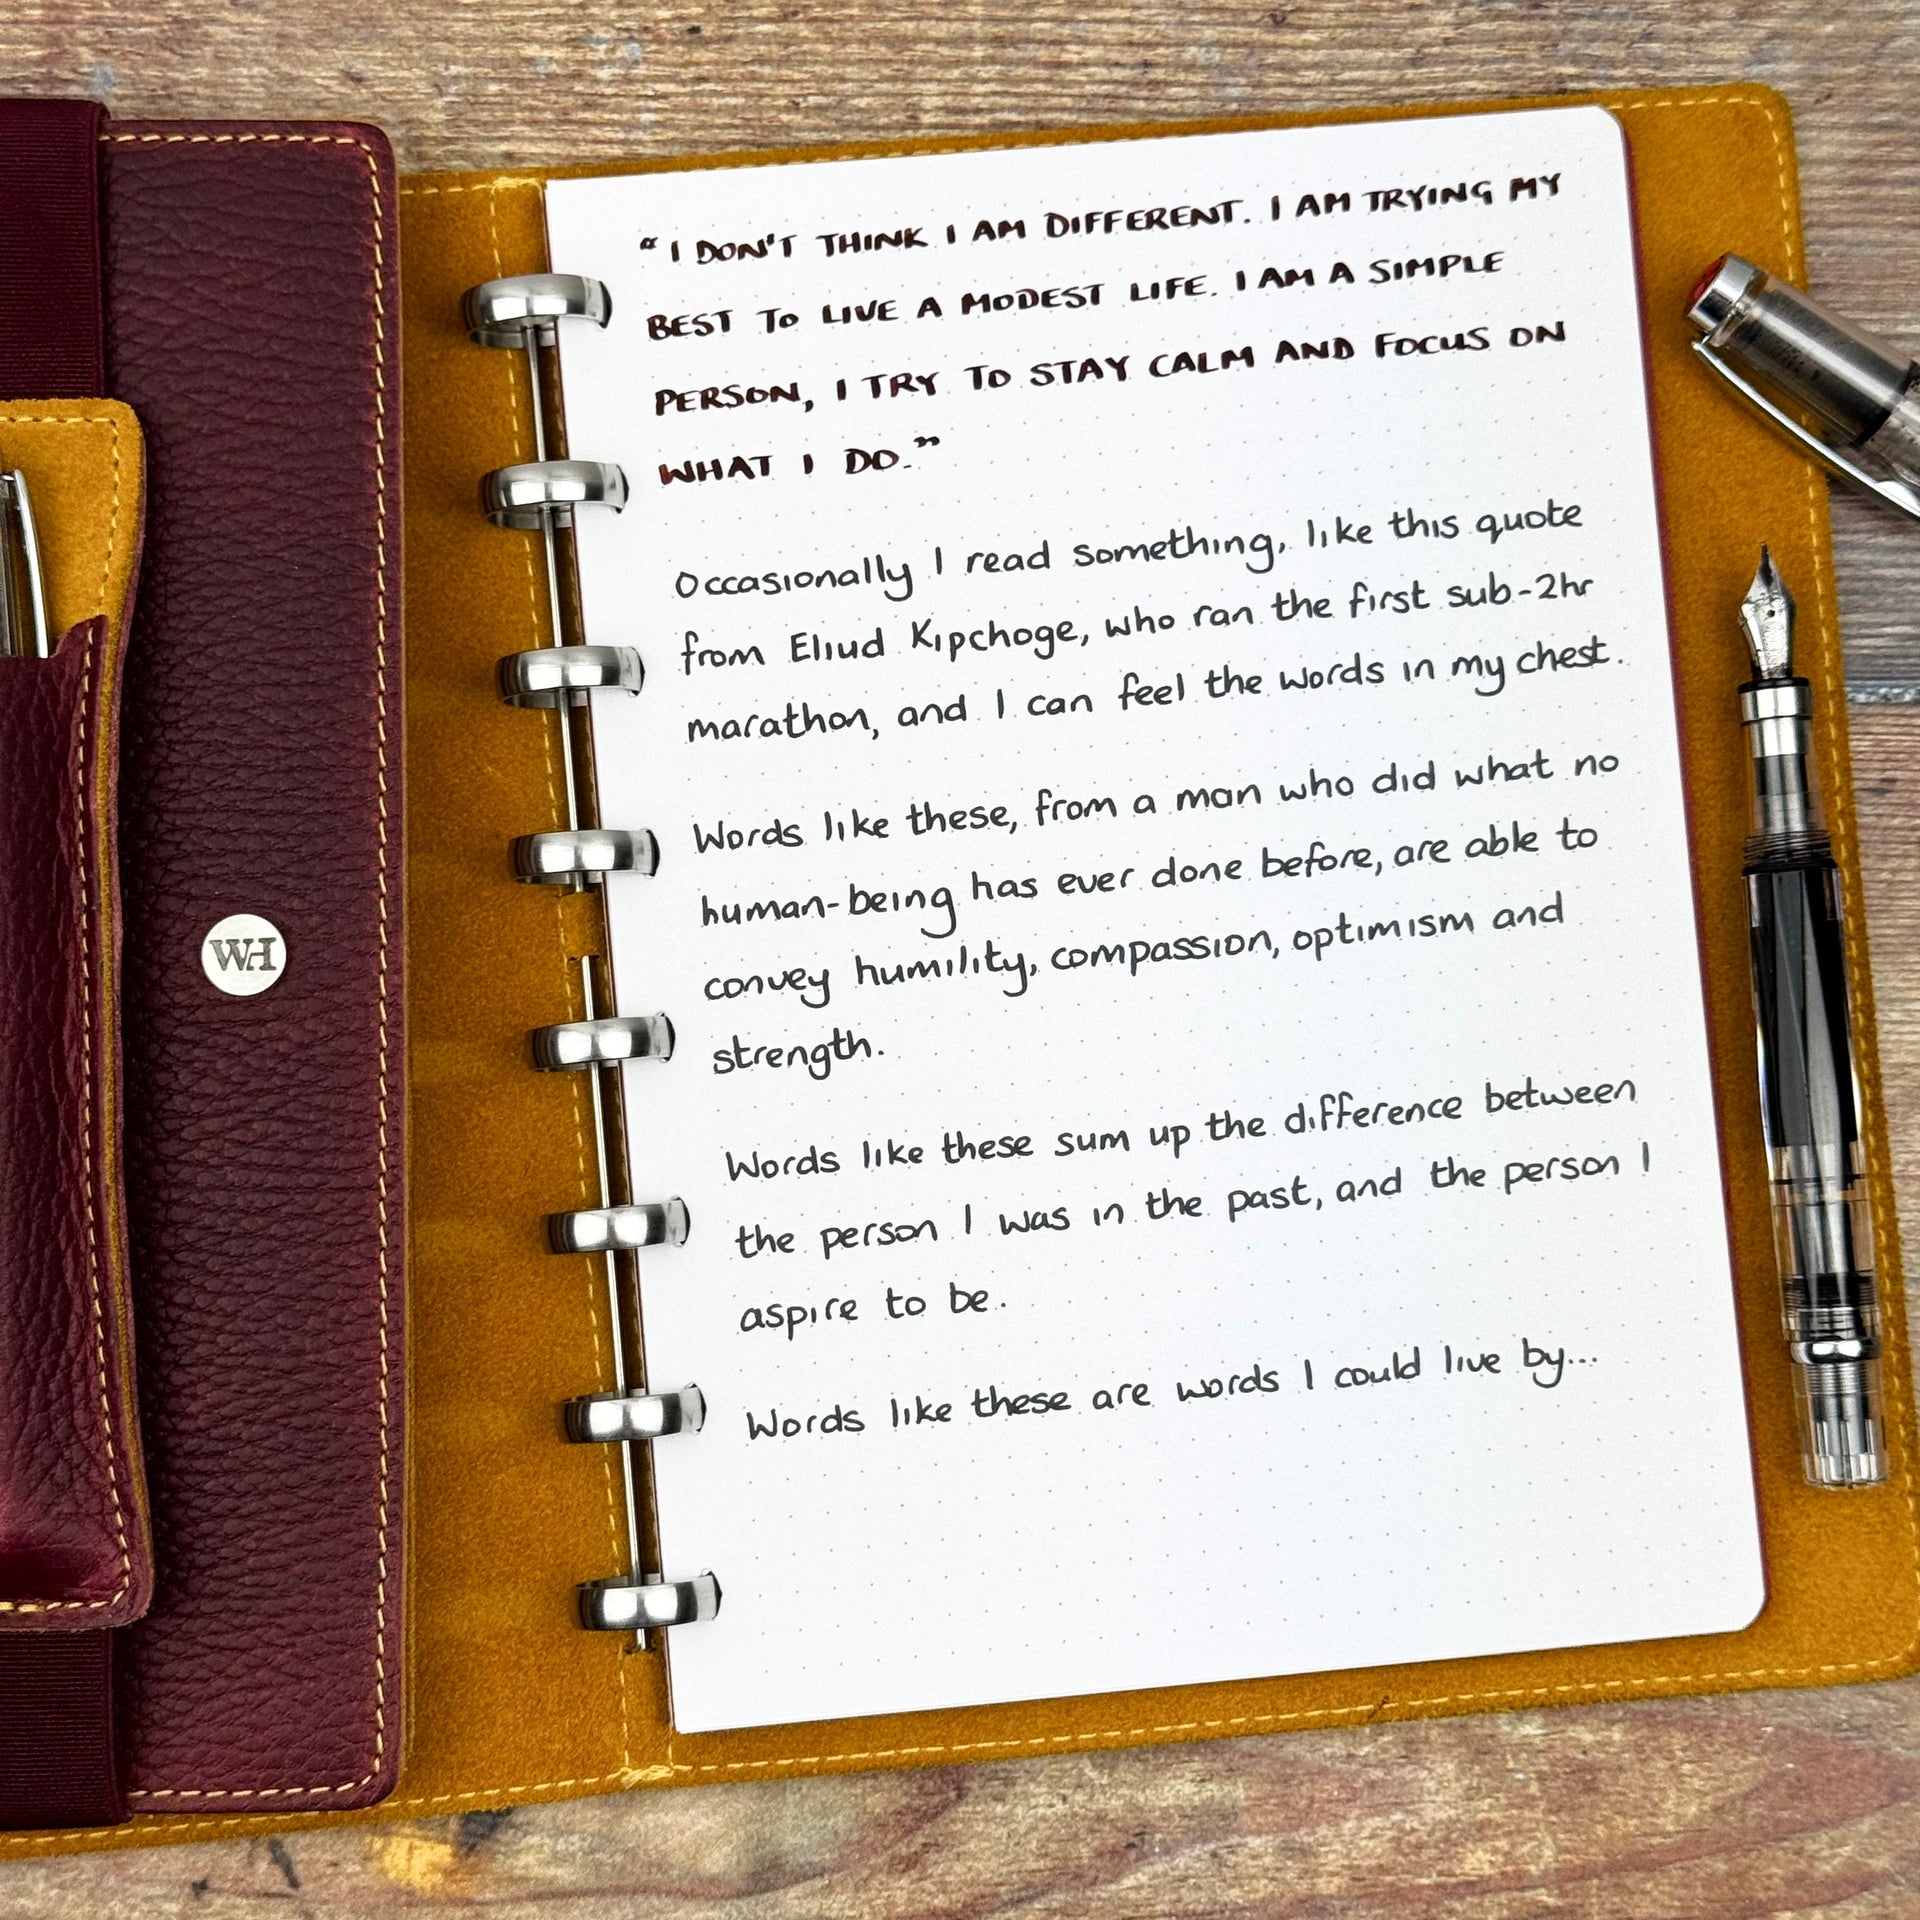 WH
“I DON'T THINK I AM DIFFERENT. I AM TRYING MY
BEST TO LIVE A MODEST LIFE. I AM A SIMPLE
PERSON, I TRY TO STAY CALM AND FOCUS ON
WHAT I DO.”
Occasionally I read something, like this quote
from Eliud Kipchoge, who ran the first sub-2hr
marathon, and I can feel the words in my chest.
Words like these, from a man who did what no
human-being has ever done before, are able to
convey humility, compassion, optimism and
strength.
Words like these sum up the difference between
the person I was in the past, and the person I
aspire to be.
Words like these are words I could live by...